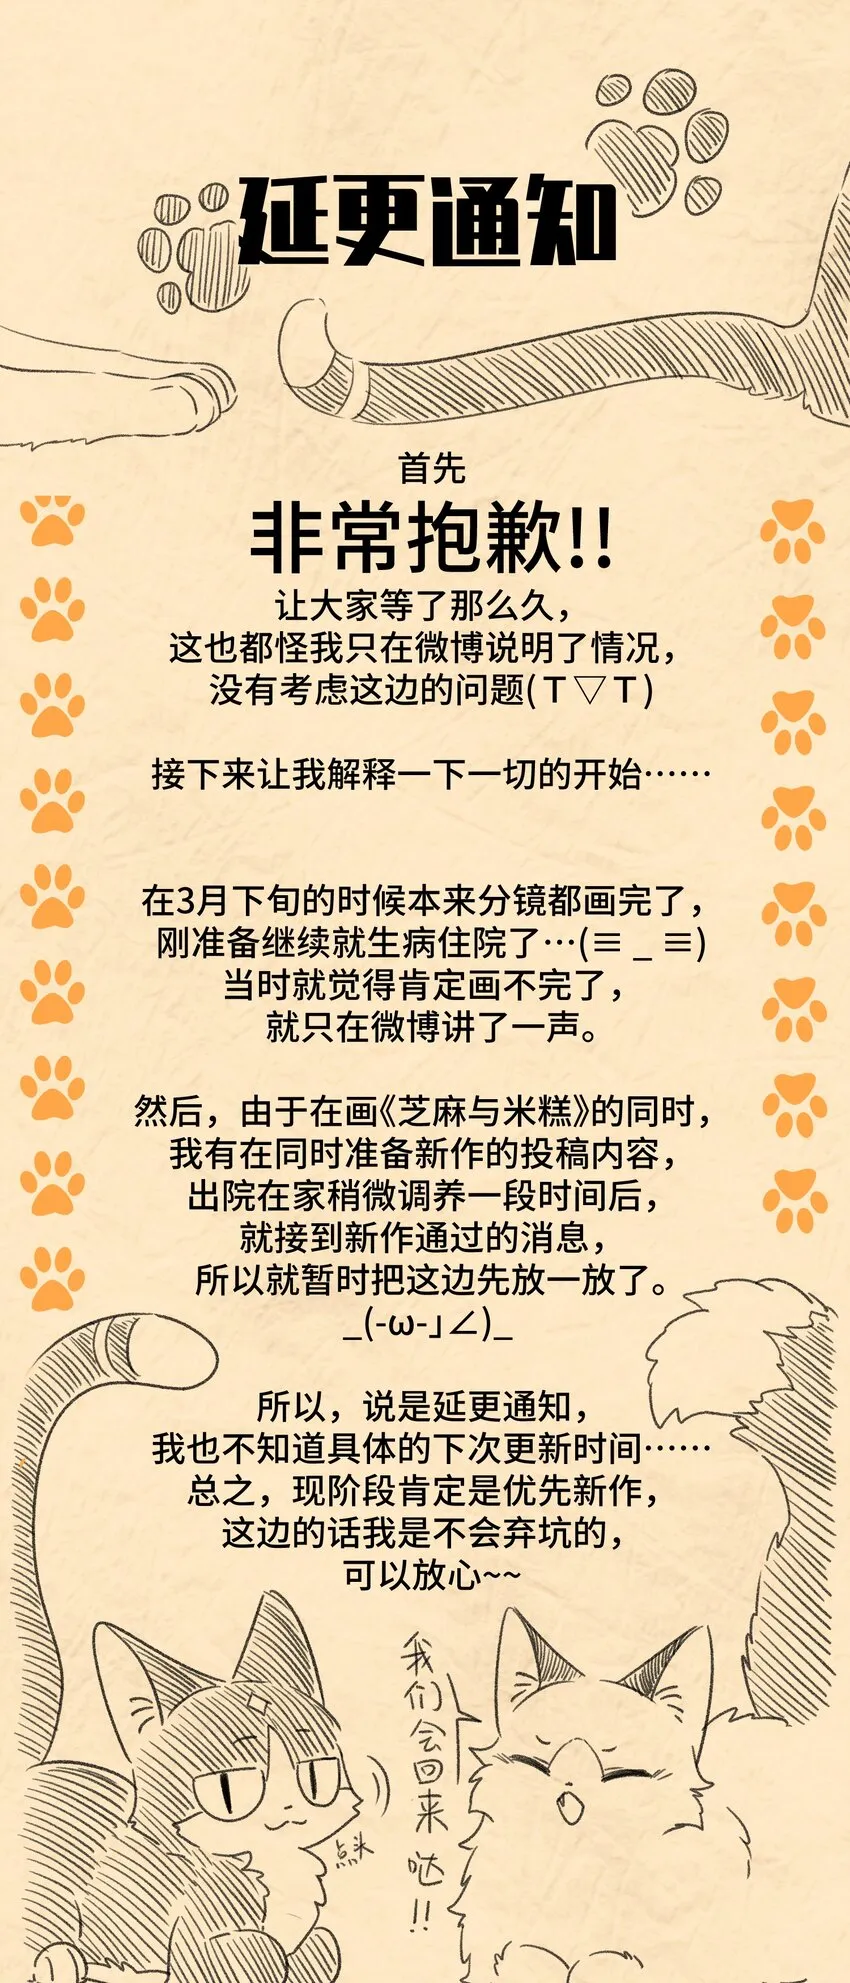 延更通知
首先
非常抱歉!!
让大家等了那么久，
这也都怪我只在微博说明了情况，
没有考虑这边的问题(Ｔ▽Ｔ)
接下来让我解释一下一切的开始……
在3月下旬的时候本来分镜都画完了，
刚准备继续就生病住院了…(≡ _ ≡)
当时就觉得肯定画不完了，
就只在微博讲了一声。
然后，由于在画《芝麻与米糕》的同时，
我有在同时准备新作的投稿内容，
出院在家稍微调养一段时间后，
就接到新作通过的消息，
所以就暂时把这边先放一放了。
_(-ω-｣∠)_
所以，说是延更通知，
我也不知道具体的下次更新时间……
总之，现阶段肯定是优先新作，
这边的话我是不会弃坑的，
可以放心~~
我们会回来哒!!
点头